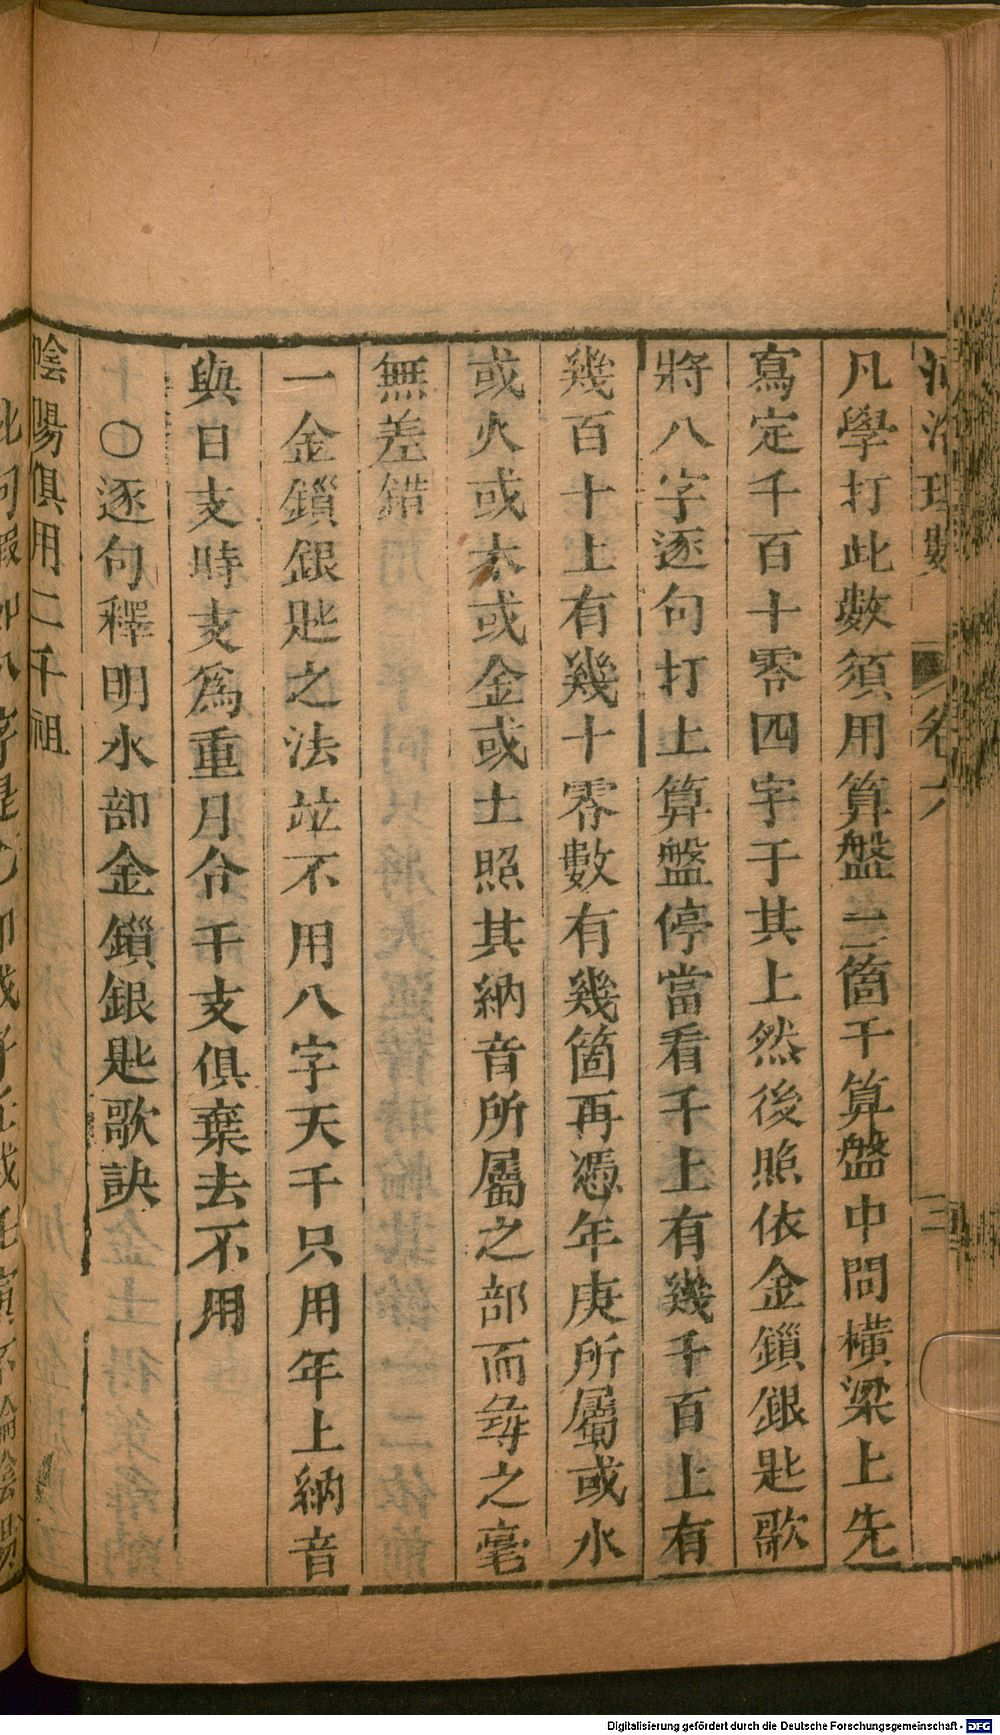 河洛理數
卷六
三
凡學打此數須用算盤二箇于算盤中間橫梁上先
寫定千百十零四字于其上然後照依金鎖銀匙歌
將八字逐句打上算盤停當看千上有幾千百上有
幾百十上有幾十零數有幾箇再憑年庚所屬或水
或火或木或金或土照其納音所屬之部而尋之毫
無差錯
一金鎖銀匙之法竝不用八字天干只用年上納音
與日支時支爲重月合干支俱棄去不用
〇逐句釋明水部金鎖銀匙歌訣
陰陽俱用二千祖
Digitalisierung gefördert durch die Deutsche Forschungsgemeinschaft - DFG